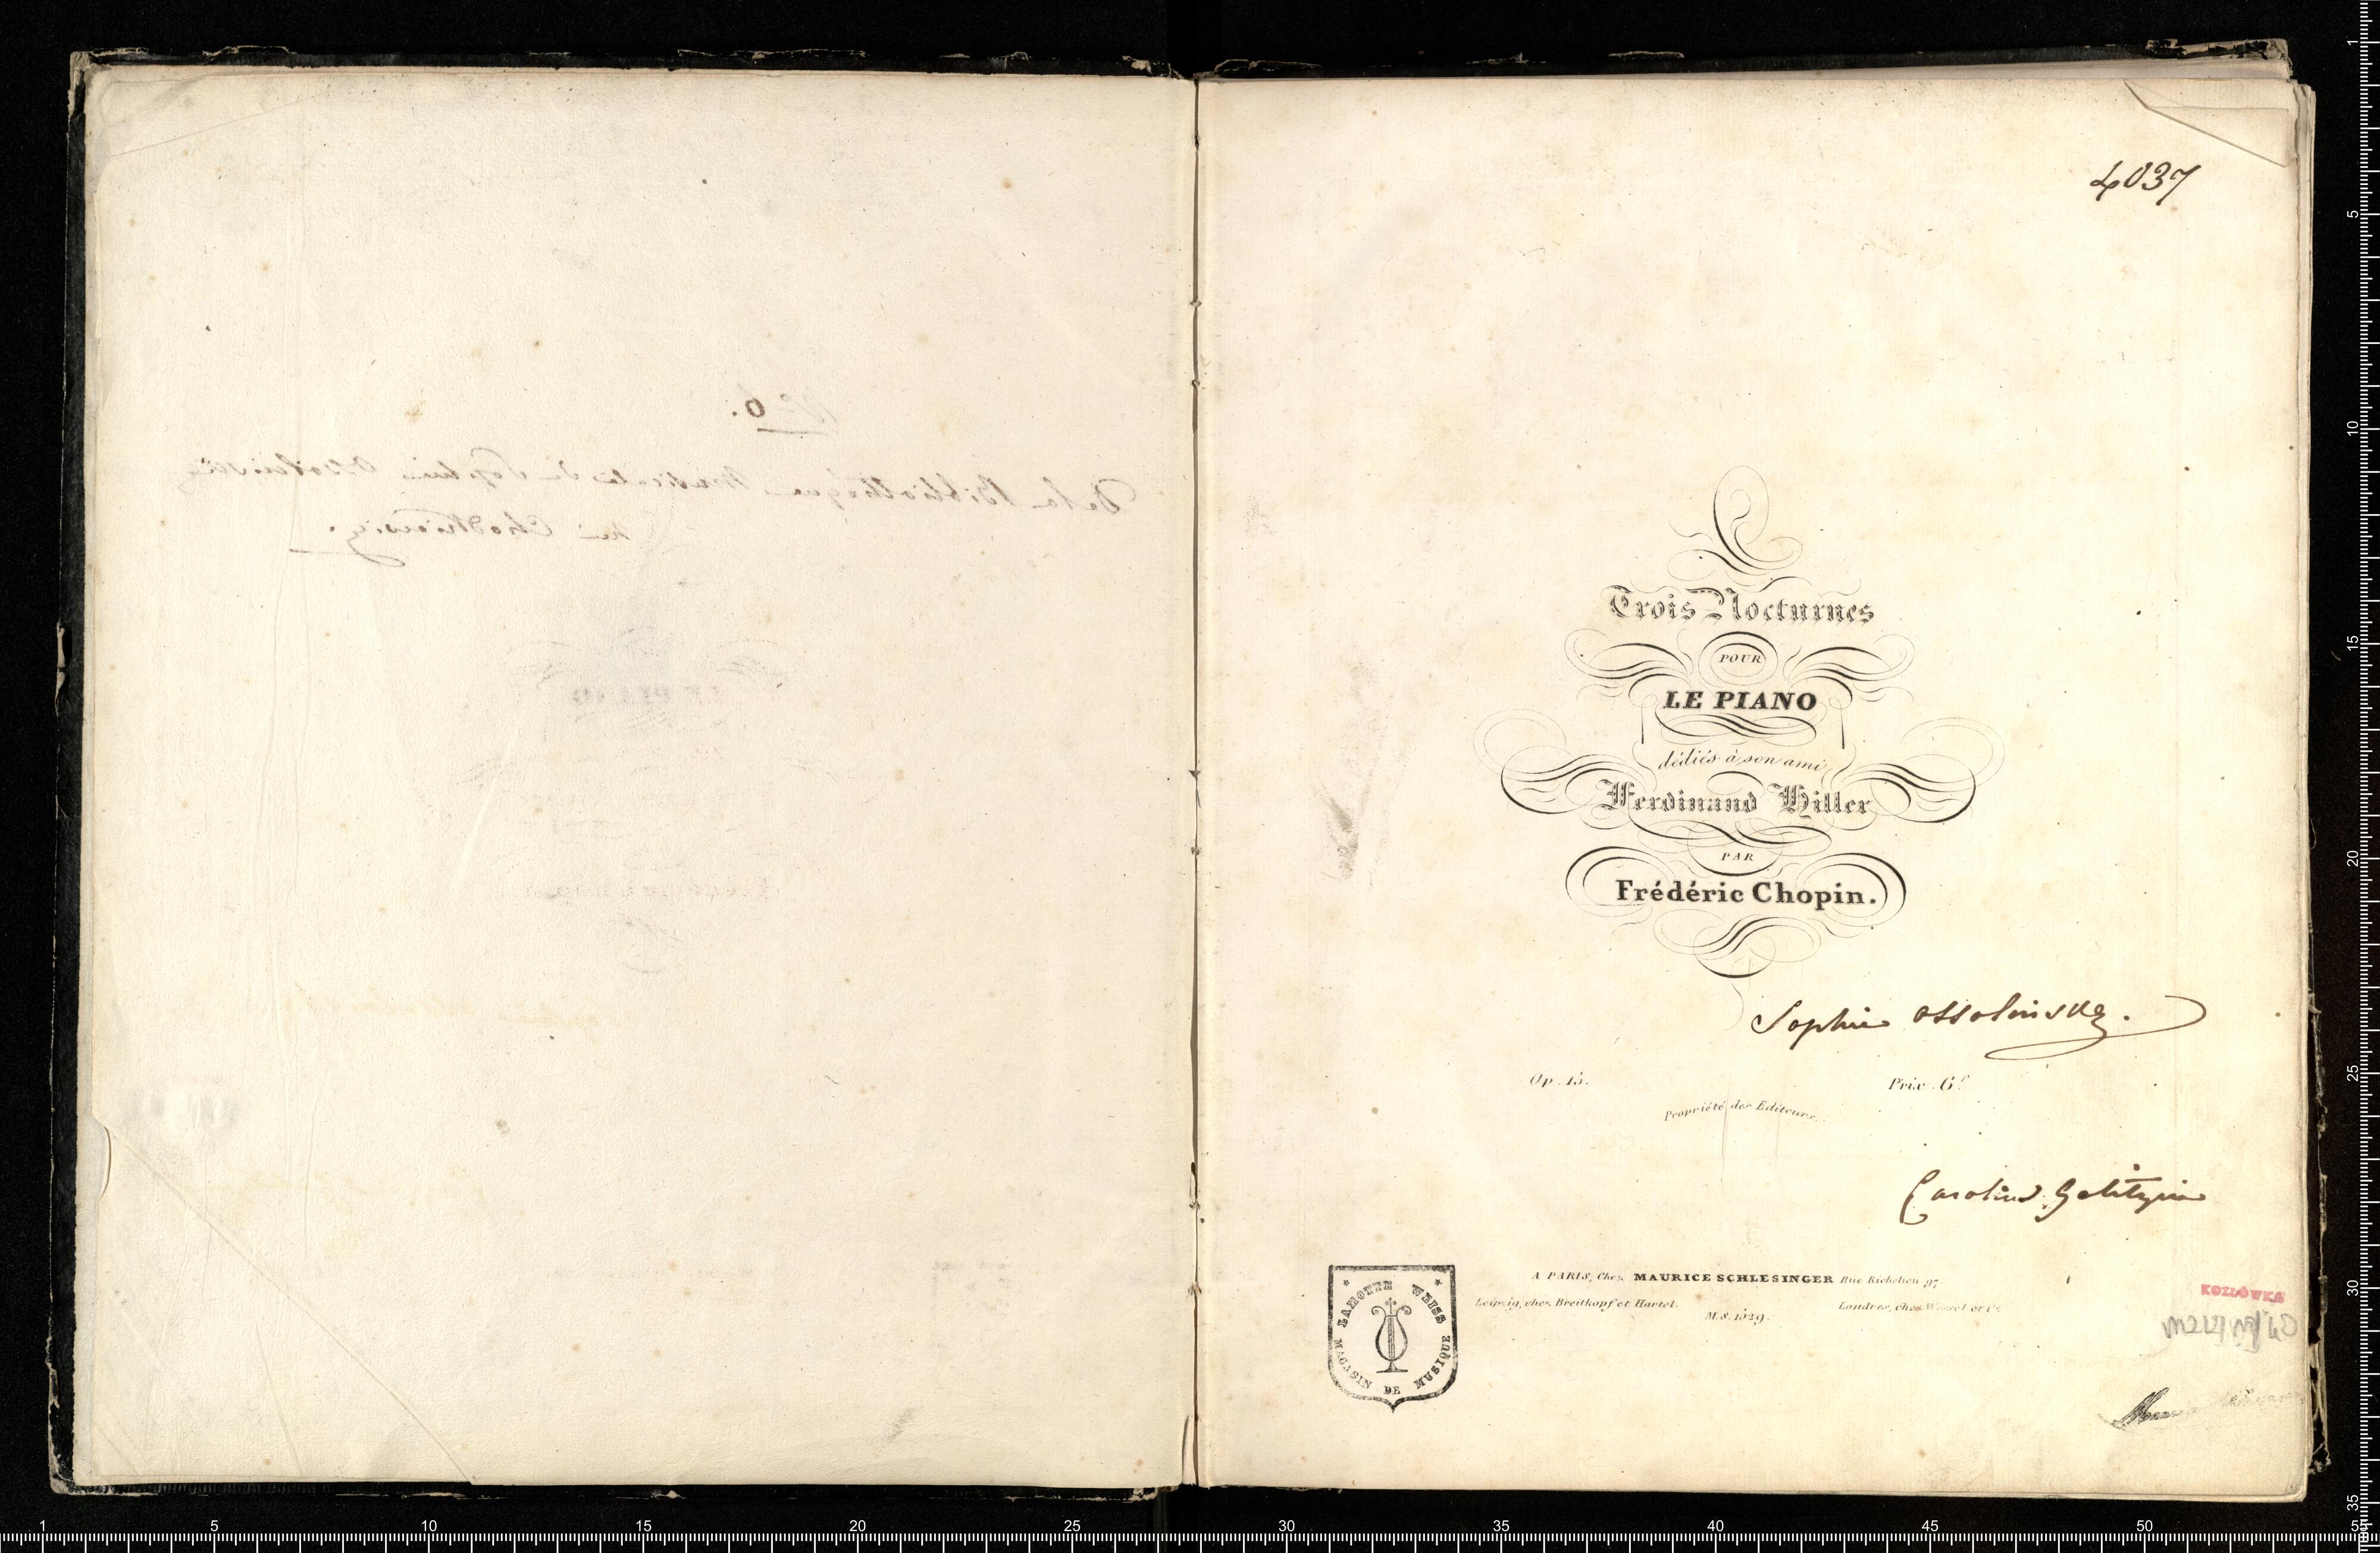 No 6.
De la Bibliothèque Musicale de Sophie Ossolinska
née Chodkiewicz.
4037
Trois Nocturnes
POUR
LE PIANO
dédiés à son ami
Ferdinand Hiller
PAR
Frédéric Chopin.
Sophie Ossolinska.
Op. 15. Prix. 6f
Propriété des Editeurs.
Caroline Galitzin
A PARIS, Chez MAURICE SCHLESINGER Rue Richelieu 97
Leipzig, chez Breitkopf et Hartel. Londres, chez Wessel et Ce
M.S. 1529.
LAMOTTE WEISS
MAGASIN DE MUSIQUE
KOZŁÓWKA